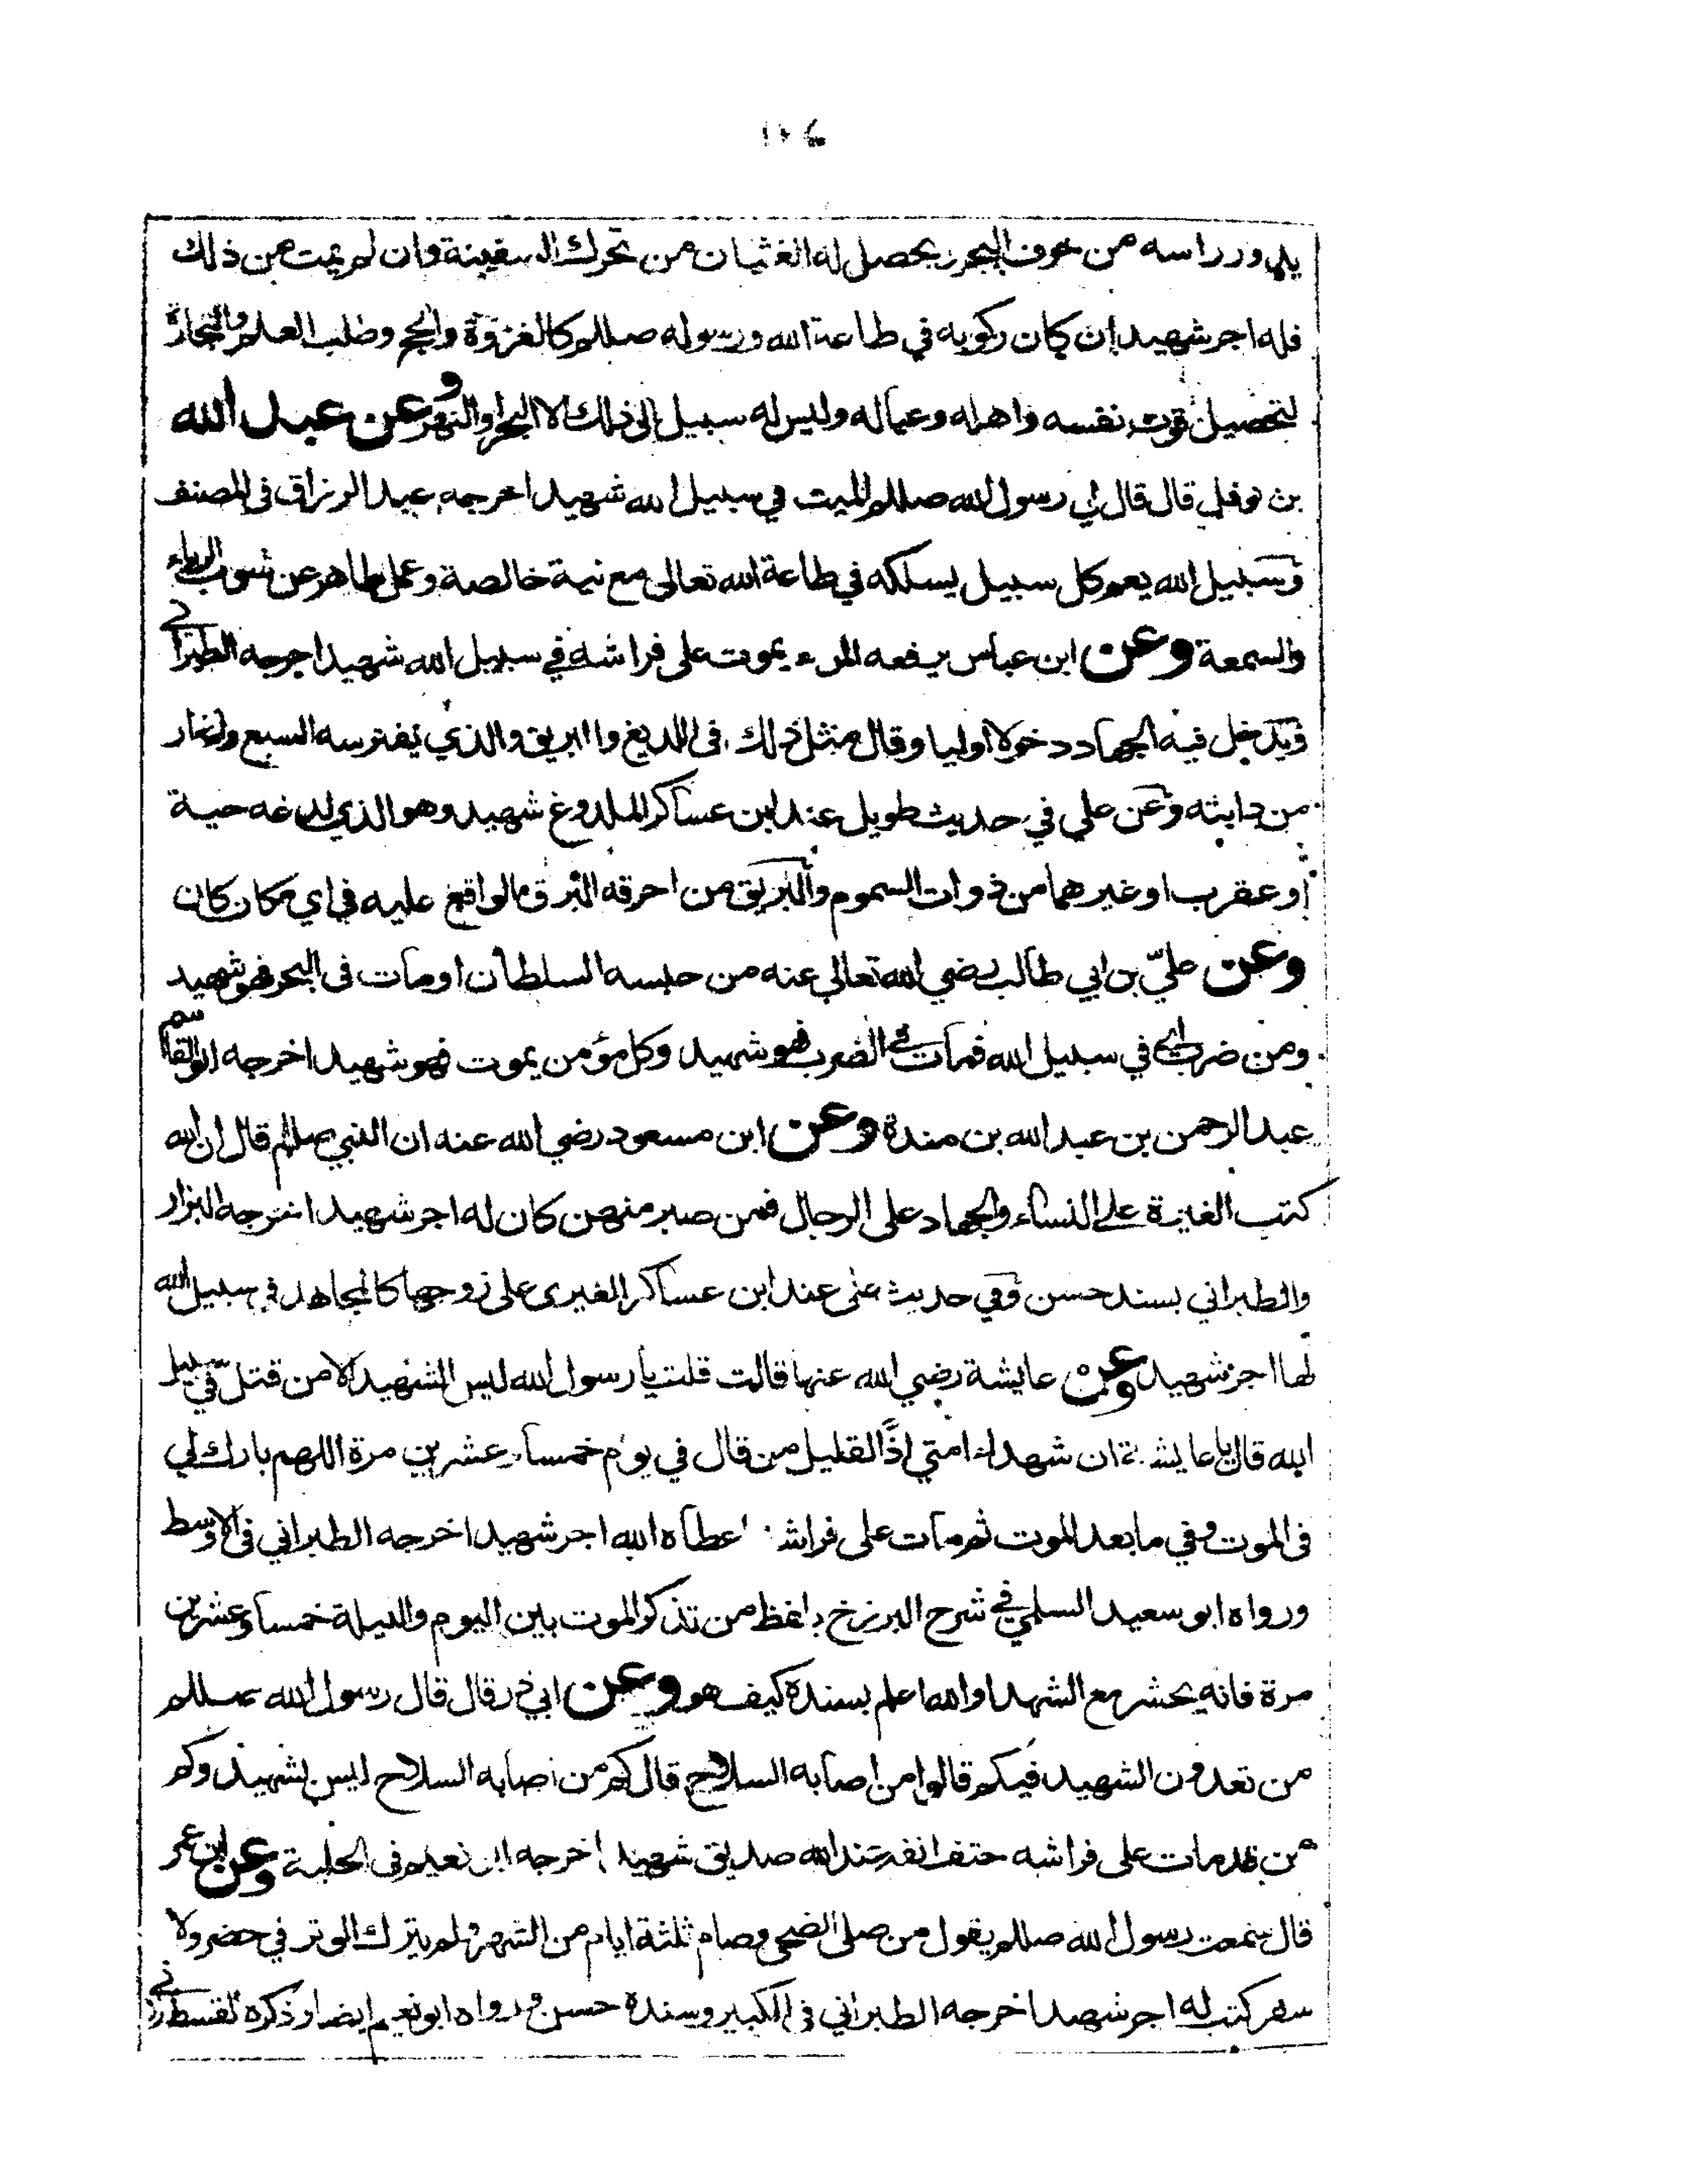 ١٠٤
يدور راسه من خوف البحر ريحصل له الغثيان من تحرك السفينة وان لم يمت من ذلك
فله اجر شهيد ان كان ركوبه في طاعة الله ورسوله صللم كالغزوة والحج وطلب العلم والتجارة
لتحصيل قوت نفسه واهله وعياله وليس له سبيل الى ذلك الا البحر والنهر وعن عبد الله
بن نوفل قال قال لي رسول الله صللم الميت في سبيل الله شهيد اخرجه عبد الرزاق فى المصنف
وسبيل الله يعم كل سبيل يسلكه في طاعة الله تعالى مع نية خالصة وعمل طاهر عن شوب الرياء
والسمعة وعن ابن عباس يرفعه المرء يموت على فراشه في سبيل الله شهيد اخرجه الطبراني
ويدخل فيه الجهاد دخولا أوليا وقال مثل ذلك فى اللديغ والبريق والذي يفترسه السبع والخار
من دابته وعن علي في حديث طويل عند ابن عساكر الملدوغ شهيد وهو الذي لدغه حية
او عقرب او غيرهما من ذوات السموم والبريق من احرقه البرق الواقع عليه في اي مكان كان
وعن علي بن ابي طالب رضي الله تعالى عنه من حبسه السلطان او مات فى البحر فهو شهيد
ومن ضرب في سبيل الله فمات في الضرب فهو شهيد وكل مؤمن يموت فهو شهيد اخرجه ابو القاسم
عبد الرحمن بن عبد الله بن مندة وعن ابن مسعود رضي الله عنه ان النبي صللم قال ان الله
كتب الغيرة على النساء والجهاد على الرجال فمن صبر منهن كان له اجر شهيد اخرجه البزار
والطبراني بسند حسن وفي حديث على عند ابن عساكر الغيرى على زوجها كالمجاهد في سبيل الله
لها اجر شهيد وعن عايشة رضي الله عنها قالت قلت يا رسول الله ليس الشهيد الا من قتل في سبيل
الله قال يا عايشة ان شهداء امتي اذًا لقليل من قال في يوم خمسا وعشرين مرة اللهم بارك لي
فى الموت وفي ما بعد الموت ثم مات على فراشه اعطاه الله اجر شهيد اخرجه الطبراني فى الاوسط
ورواه ابو سعيد السلمي في شرح البرزخ بلفظ من تذكر الموت بين اليوم والليلة خمسا وعشرين
مرة فانه يحشر مع الشهدا والله اعلم بسنده كيف هو وعن ابي ذر قال قال رسول الله صللم
من تعدون الشهيد فيكم قالوا من اصابه السلاح قال كم من اصابه السلاح ليس بشهيد وكم
من مات على فراشه حتف انفه عند الله صديق شهيد اخرجه ابو نعيم فى الحلية وعن ابن عمر
قال سمعت رسول الله صللم يقول من صلى الضحى وصام ثلثة ايام من الشهر ولم يترك الوتر في حضر ولا
سفر كتب له اجر شهيد اخرجه الطبراني فى الكبير وسنده حسن ورواه ابو نعيم ايضا وذكره القسطلاني